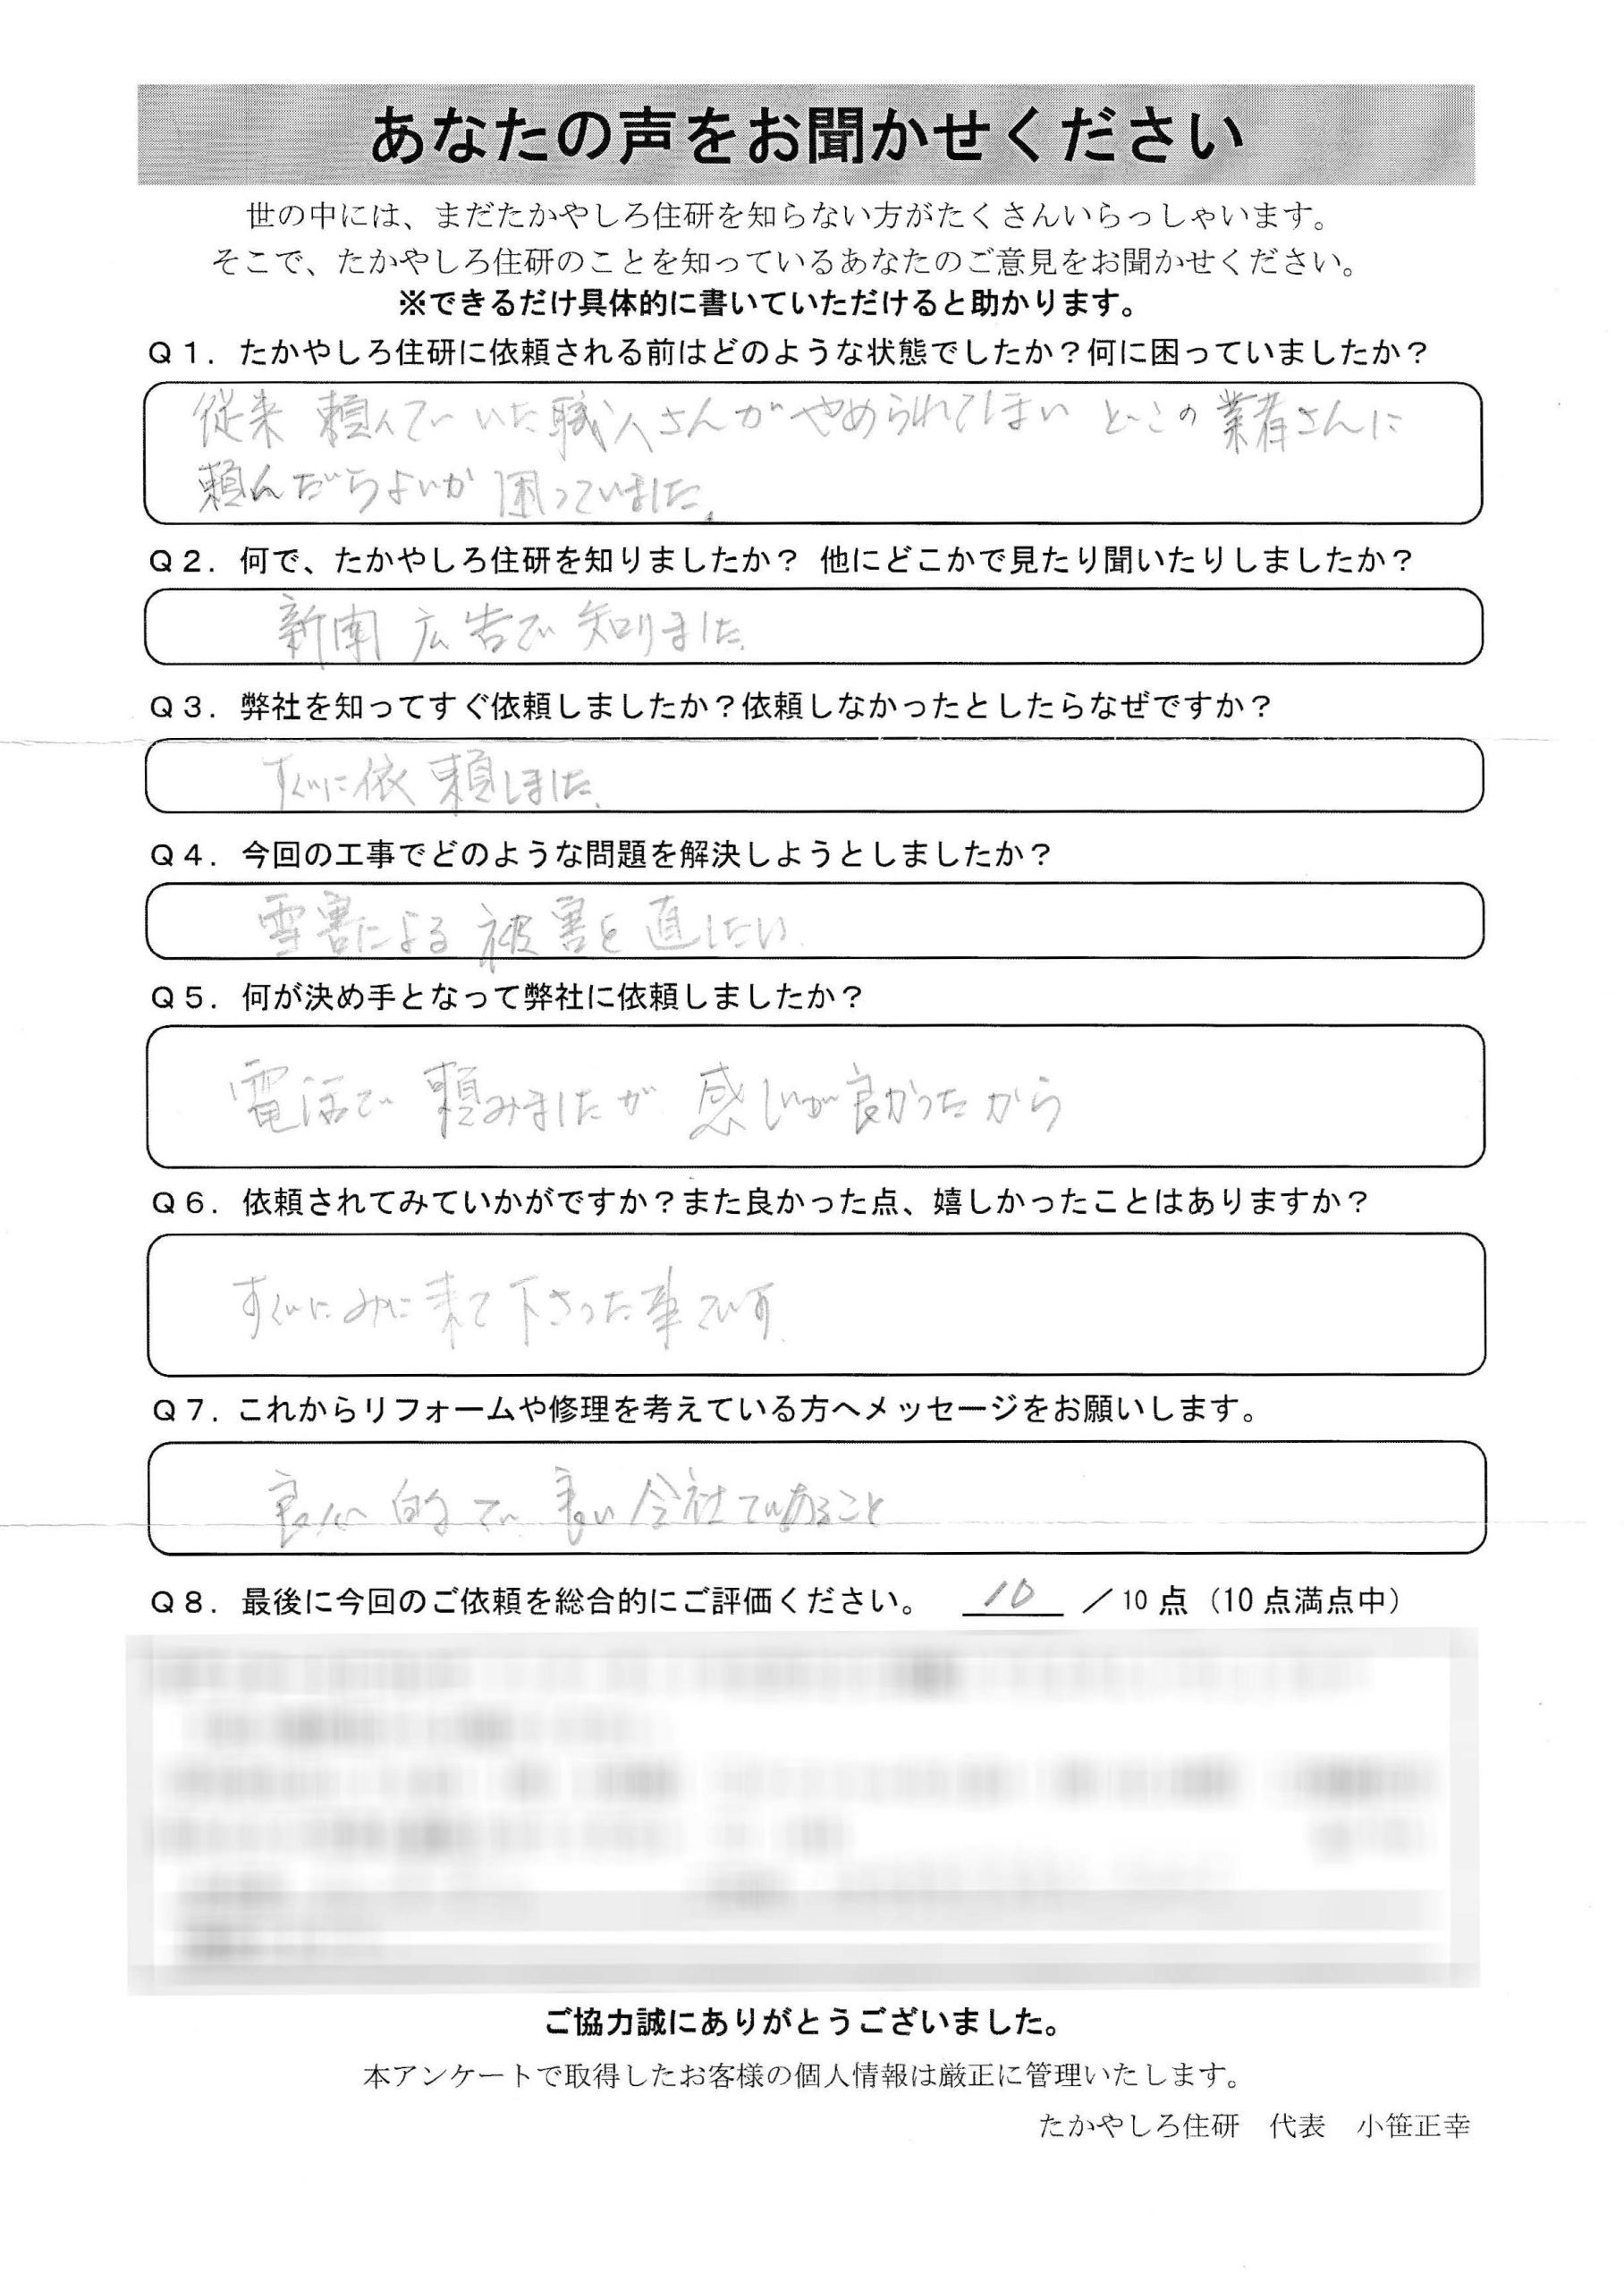 あなたの声をお聞かせください
世の中には、まだたかやしろ住研を知らない方がたくさんいらっしゃいます。
そこで、たかやしろ住研のことを知っているあなたのご意見をお聞かせください。
※できるだけ具体的に書いていただけると助かります。
Q1．たかやしろ住研に依頼される前はどのような状態でしたか？何に困っていましたか？
従来 頼んでいた職人さんがやめられてしまい どこの業者さんに
頼んだらよいか 困っていました。
Q2．何で、たかやしろ住研を知りましたか？ 他にどこかで見たり聞いたりしましたか？
新聞 広告で 知りました。
Q3．弊社を知ってすぐ依頼しましたか？依頼しなかったとしたらなぜですか？
すぐに依頼しました。
Q4．今回の工事でどのような問題を解決しようとしましたか？
雪害による 被害を 直したい
Q5．何が決め手となって弊社に依頼しましたか？
電話で 頼みましたが 感じが良かったから
Q6．依頼されてみていかがですか？また良かった点、嬉しかったことはありますか？
すぐにみに来て下さった事です。
Q7．これからリフォームや修理を考えている方へメッセージをお願いします。
良心的で 良い会社であること
Q8．最後に今回のご依頼を総合的にご評価ください。 10 ／10 点（10 点満点中）
ご協力誠にありがとうございました。
本アンケートで取得したお客様の個人情報は厳正に管理いたします。
たかやしろ住研 代表 小笹正幸